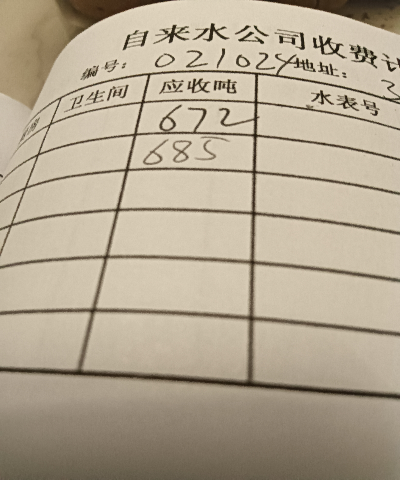 自来水公司收费
编号：021024 地址：3
卫生间 应收吨 水表号
672
685